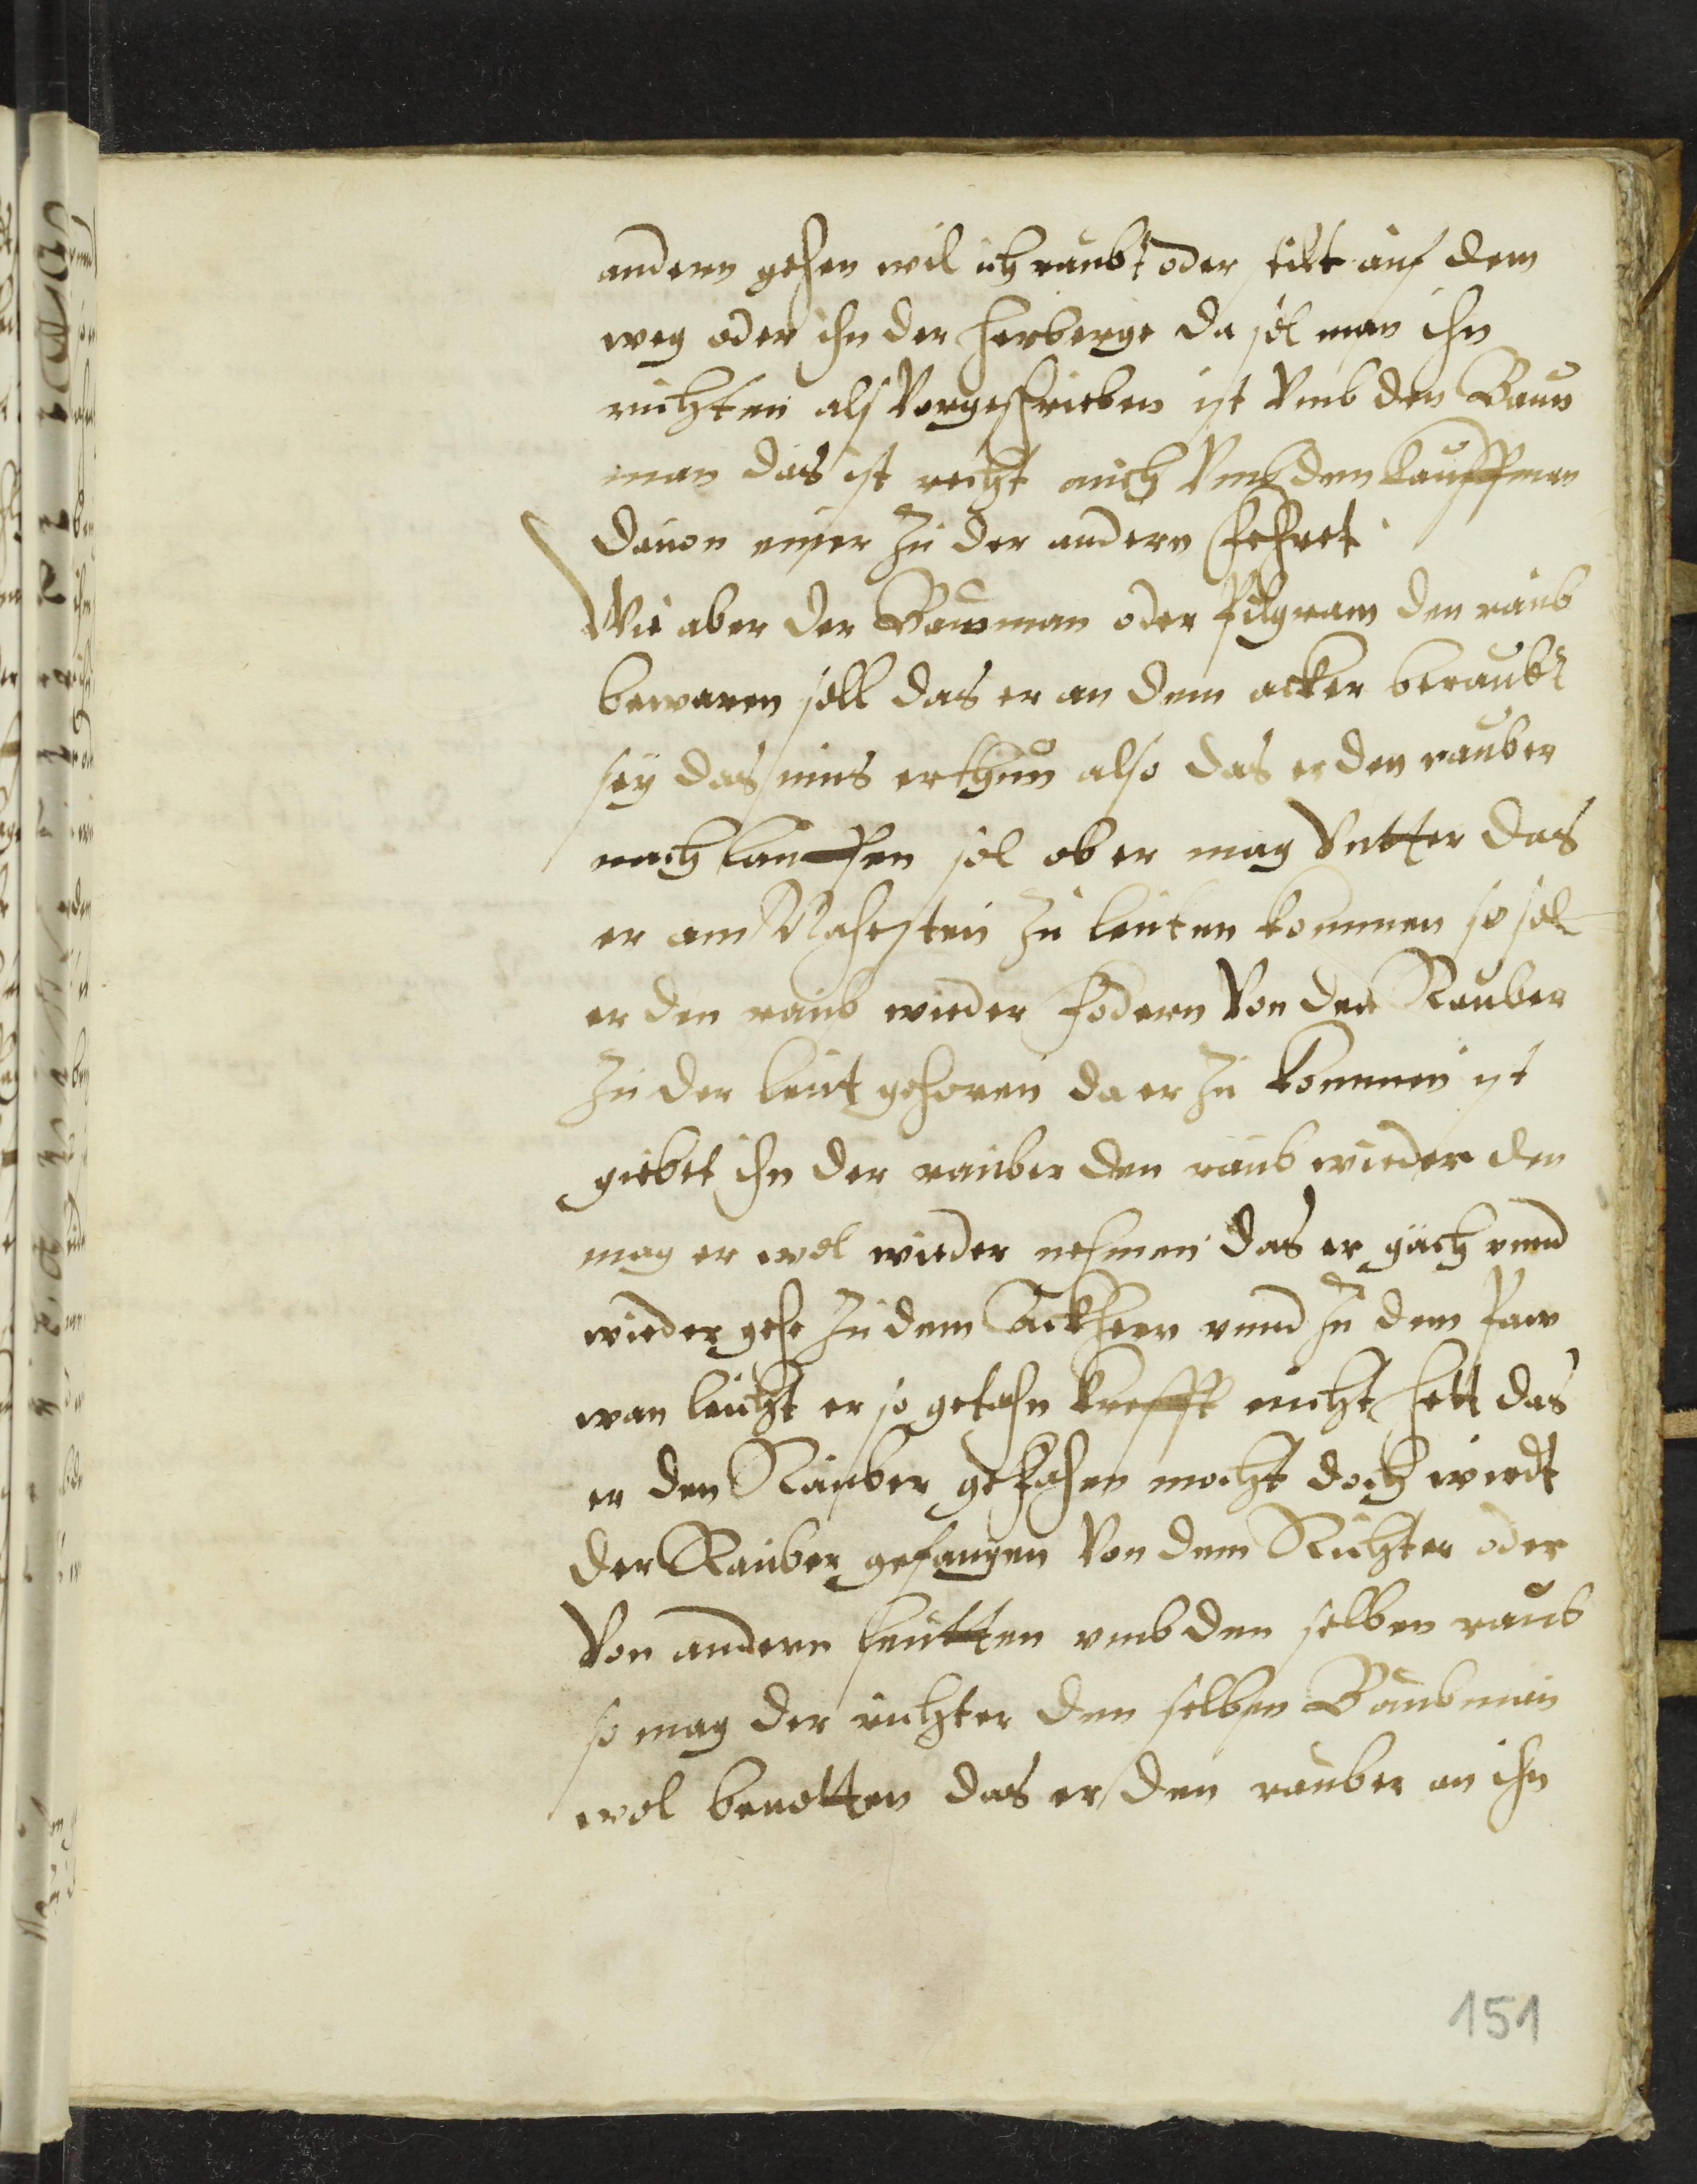 andern gehen wil ich raubt oder stilt auf dem
weg oder ihn der herberge da sol man ihn
richten als Vorgeschrieben ist Vmb den Baw
man das ist recht auch Vmb den kauffman
dauon einer zu der andern fehret
Wie aber der Bawman oder Pilgram den raub
bewaren soll das er an dem acker beraubt
sey das mus er thun also das er den rauber
nach lauffen sol ob er mag Vntter das
er am Nahesten zu leuten kommen so sol
er den raub wieder fodern Von den Rauber
zu der leut gehoren da er zu kommen ist
giebet ihn der rauber den raub wieder den
mag er wol wieder nehmen das er gach vnnd
wieder gehe zu dem Ackherr vnnd zu dem Paw
wan leicht er so gethan krefft nicht hett das
er den Rauber gefahen mocht doch wirdt
der Rauber gefangen Von dem Richter oder
Von andern leutten vmb den selben raub
so mag der richter den selben Baubman
wol benotten das er den rauber an ihn
151